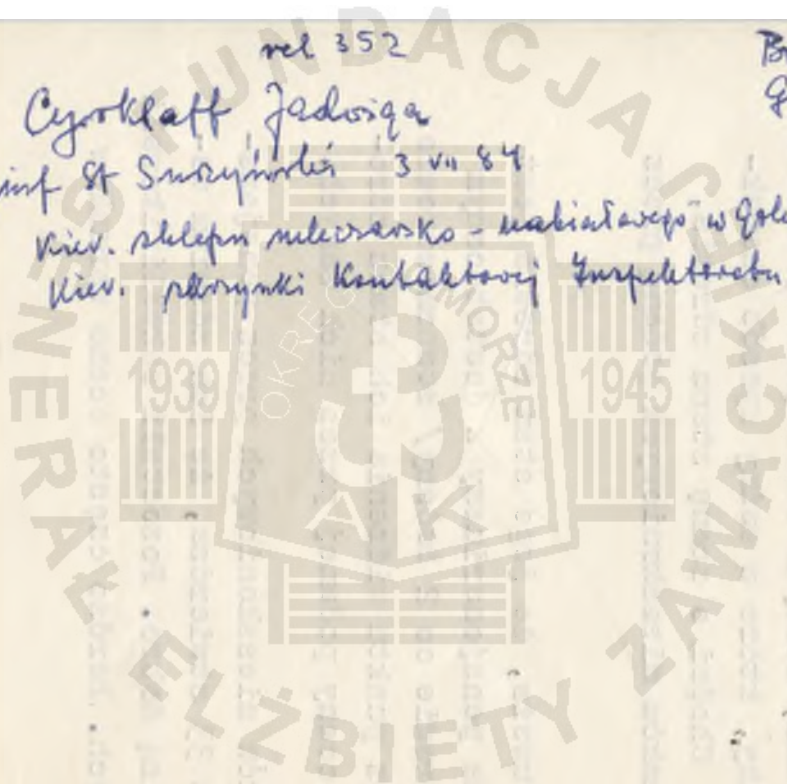 rel 352
Br
Cyrklaff Jadwiga
G
inf St Suszyński 3 VII 84
Kier. sklepu mleczarsko-nabiałowego w Gol
Kier. skrzynki Kontaktowej Inspektoratu
FUNDACJA GENERAŁ ELŻBIETY ZAWACKIEJ
1939
1945
OKRĘG POMORZE
AK